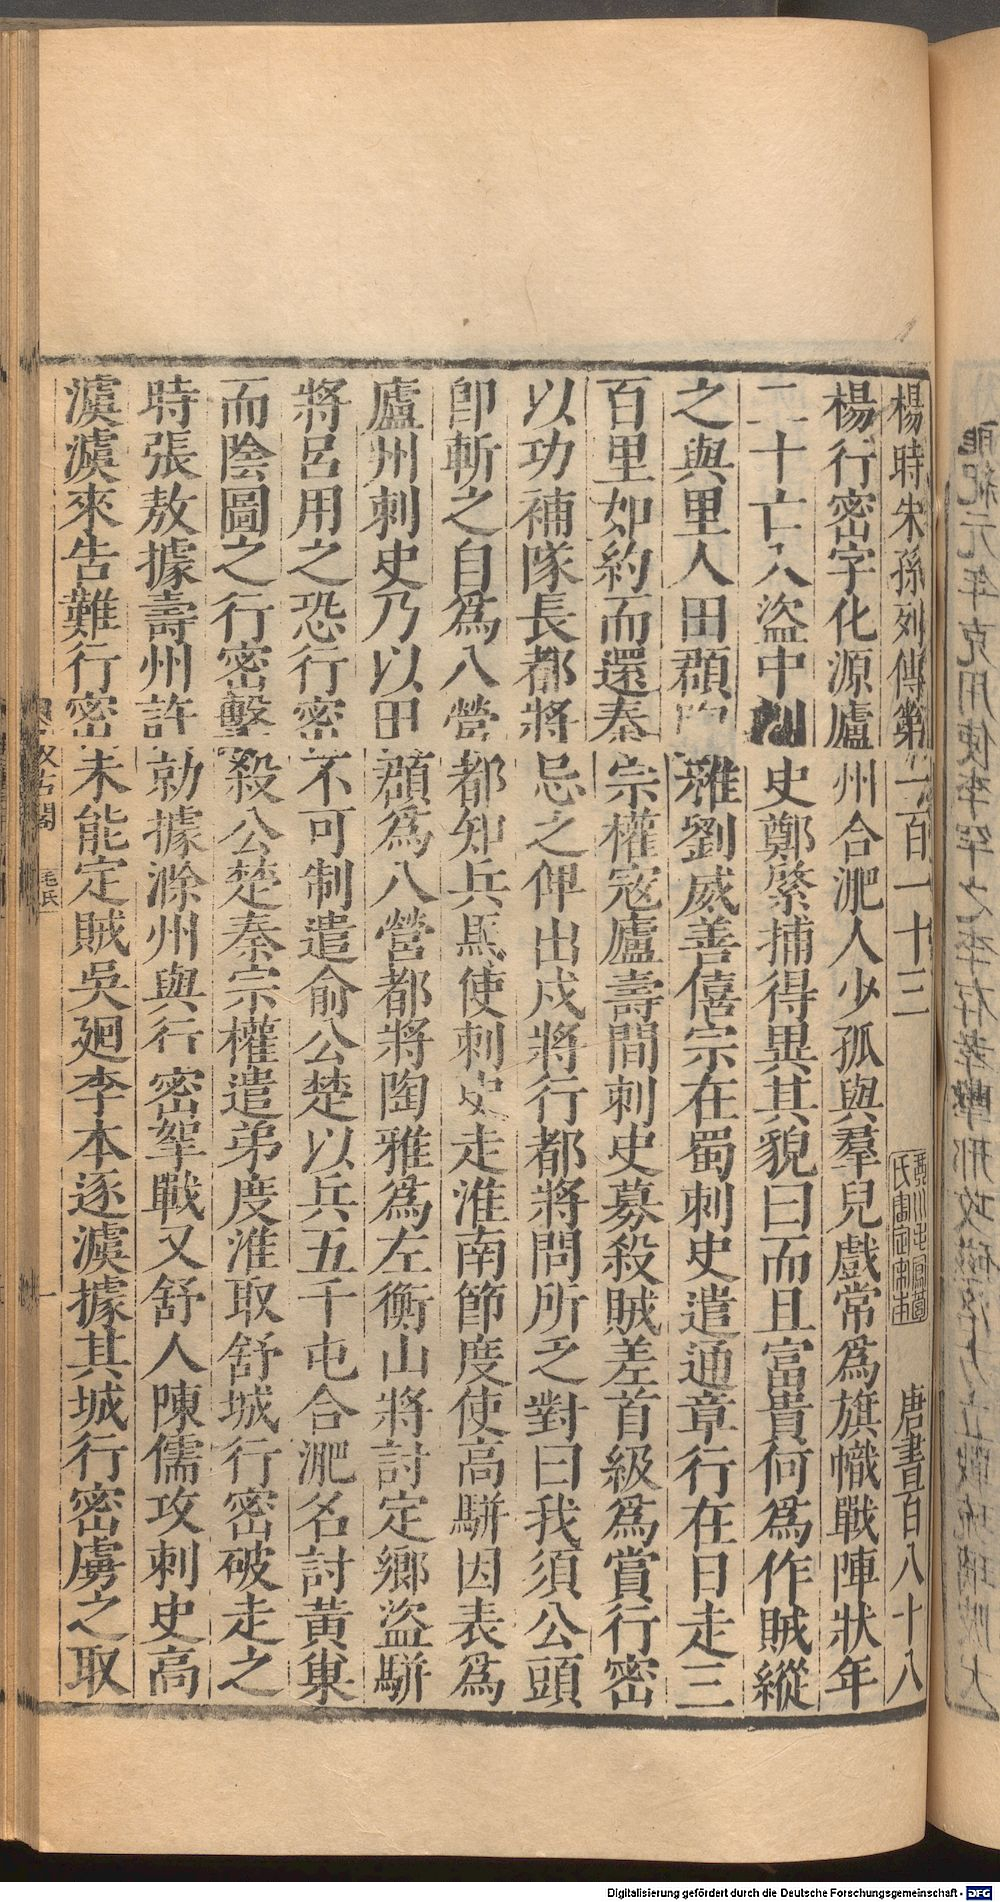 楊時朱孫列傳第一百一十三 唐書百八十八
楊行密字化源廬州合淝人少孤與羣兒戲常爲旗幟戰陣狀年
二十亡入盜中刺史鄭棨捕得異其貌曰而且富貴何爲作賊縱
之與里人田頵陶雅劉威善僖宗在蜀刺史遣通章行在日走三
百里如約而還秦宗權寇廬壽間刺史募殺賊差首級爲賞行密
以功補隊長都將忌之俾出戍將行都將問所乏對曰我須公頭
卽斬之自爲八營都知兵馬使刺史走淮南節度使高駢因表爲
廬州刺史乃以田頵爲八營都將陶雅爲左衝山將討定鄉盜駢
將呂用之恐行密不可制遣俞公楚以兵五千屯合淝名討黃巢
而陰圖之行密擊殺公楚秦宗權遣弟度淮取舒城行密破走之
時張敖據壽州許勍據滁州與行密挐戰又舒人陳儒攻刺史高
澞澞來告難行密未能定賊吳迴李本逐澞據其城行密虜之取
汲古閣
毛氏
一
Digitalisierung gefördert durch die Deutsche Forschungsgemeinschaft - DFG